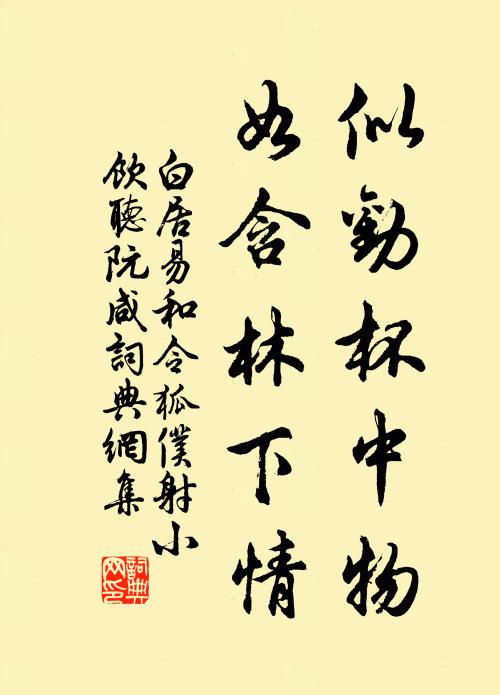 似勸杯中物
如含林下情
白居易和令狐僕射小
飲聽阮咸詞典網集
詞典网印